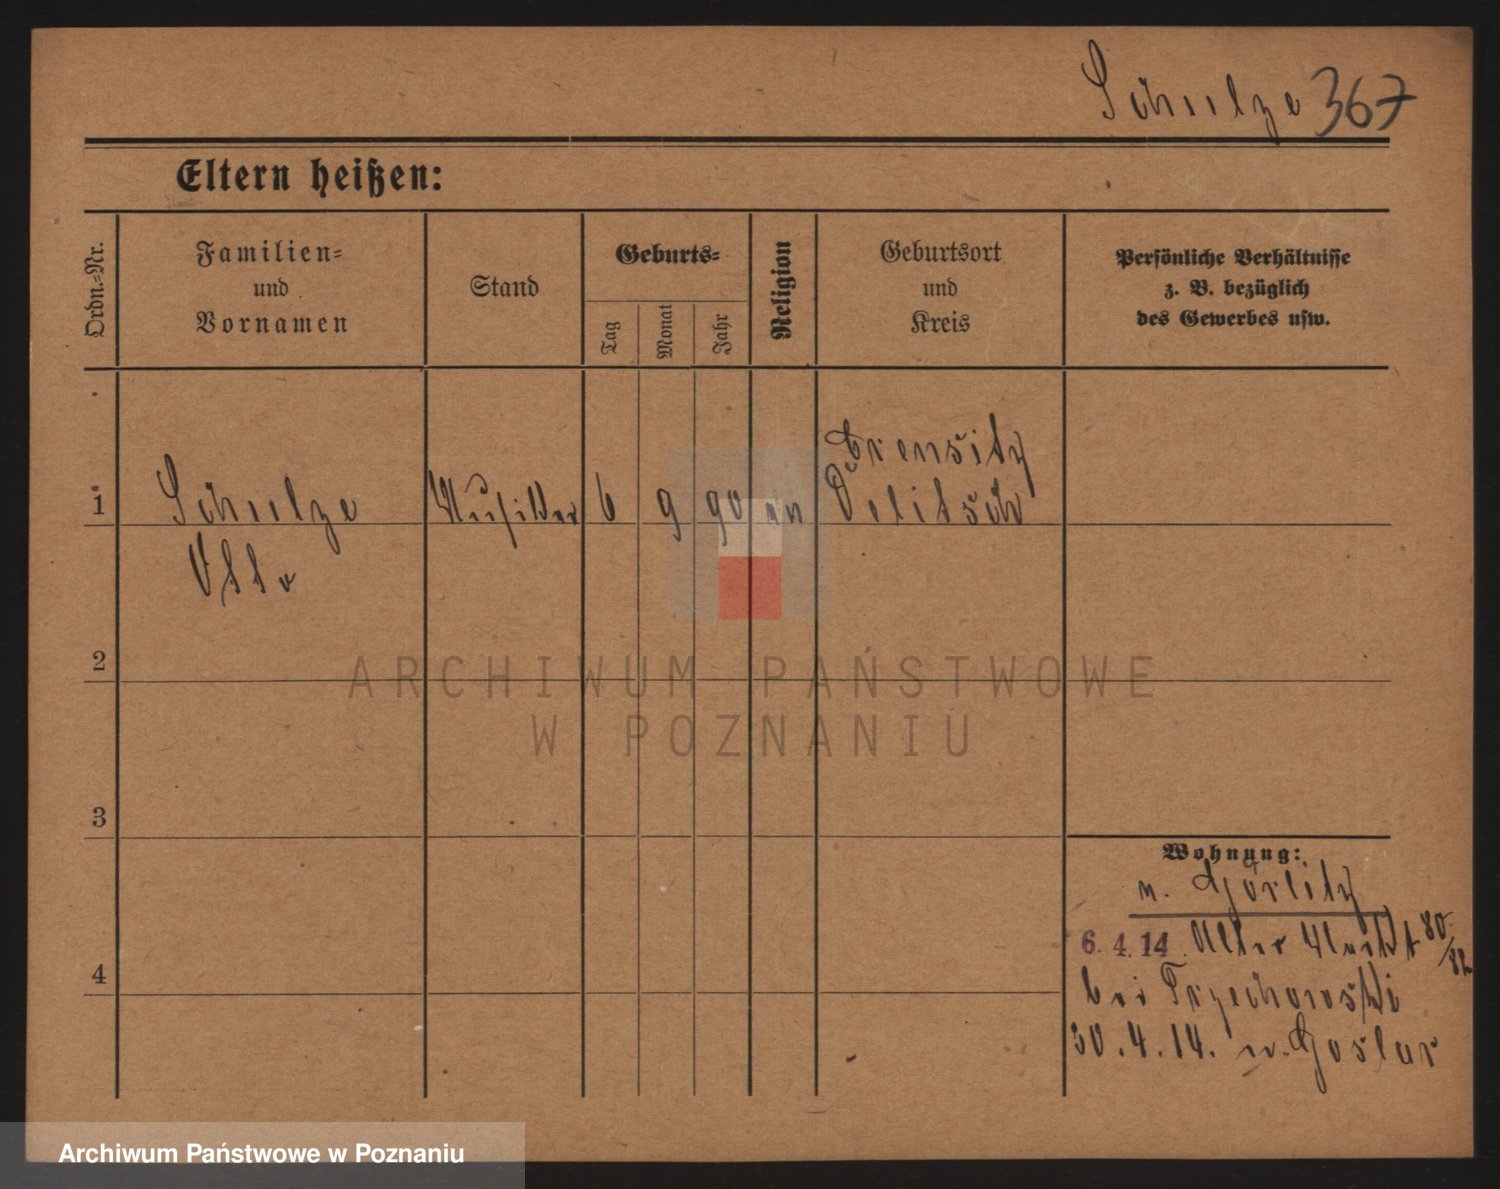 Schulze 367
Eltern heißen:
Ordn.-Nr.
Familien-
und
Vornamen
Stand
Geburts-
Tag
Monat
Jahr
Religion
Geburtsort
und
Kreis
Persönliche Verhältnisse
z. B. bezüglich
des Gewerbes usw.
1
Schulze
Otto
Musiker
6
9
90
ev
Crensitz
Delitsch
2
3
4
Wohnung:
n. Görlitz
6. 4. 14. Alter Markt 80/82
bei Trzechowski
30. 4. 14. n. Goslar
ARCHIWUM PAŃSTWOWE
W POZNANIU
Archiwum Państwowe w Poznaniu